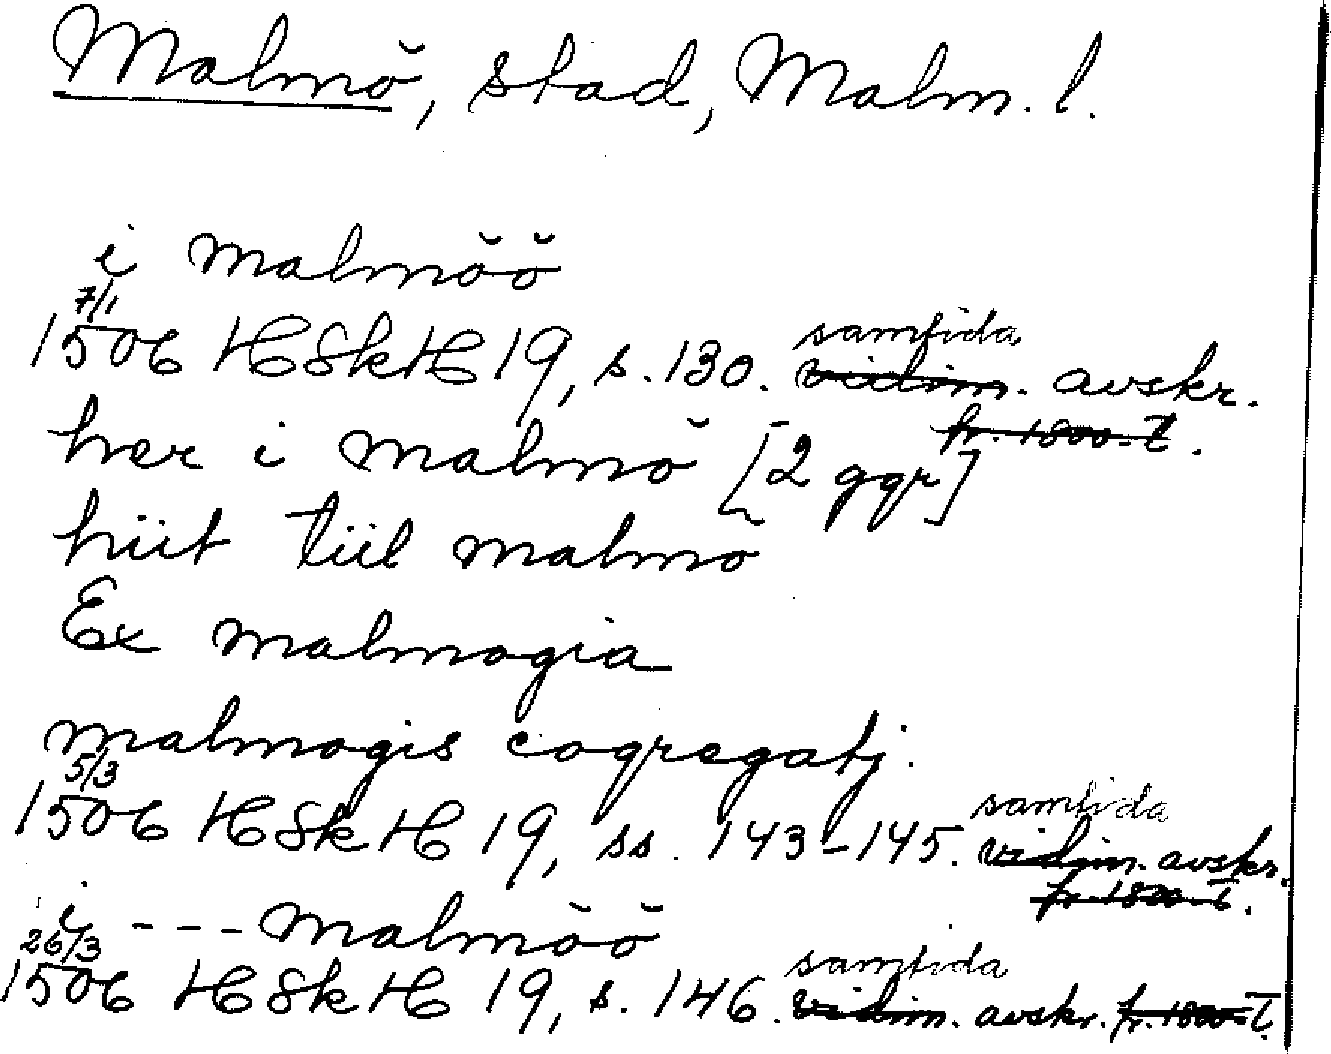 Malmö, stad, Malm. l.
i malmöö
7/1 1506 HSkH 19, s. 130. samtida vidim. avskr.
fr. 1800-t.
her i malmö [2 ggr]
hiit tiil malmö
Ex malmogia
malmogis cogregatj.
5/3 1506 HSkH 19, ss. 143-145. samtida vidim. avskr.
fr. 1800-t.
i --- malmöö
26/3 1506 HSkH 19, s. 146. samtida vidim. avskr. fr. 1800-t.